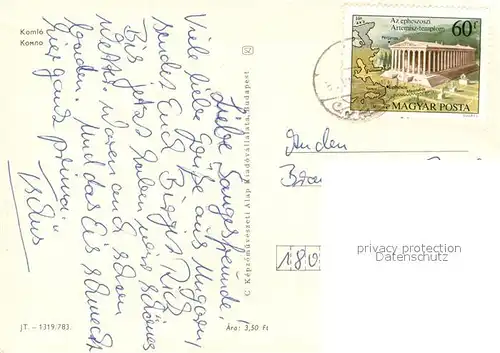 Komló
Комло
Liebe Sangesfreunde,
Viele liebe Grüße aus Ungarn,
sendet Euch Birgit
Bis jetzt haben wir schönes
Wetter, waren auch schon
baden. Und das Eis schmeckt
hier ganz prima.
Tschüs
C Képzőművészeti Alap Kiadóvállalata, Budapest
JT. – 1319.783.
Ára: 3,50 Ft
Az epheszoszi
Artemisz-templom
60 f
MAGYAR POSTA
An den
180
privacy protection
Datenschutz